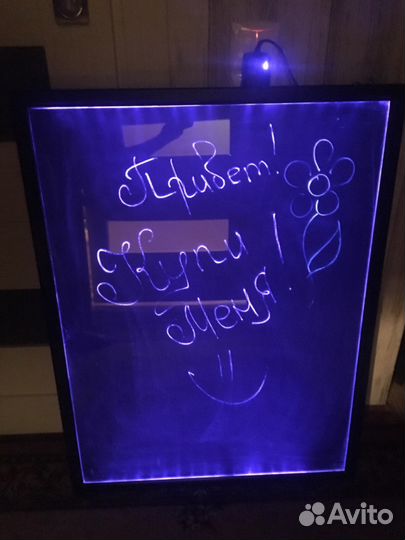 Привет!
Купи!
Меня.
Avito